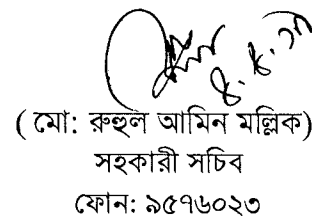 ৪.৪.১৭
( মো: রুহুল আমিন মল্লিক)
সহকারী সচিব
ফোন: ৯৫৭৬০২৩